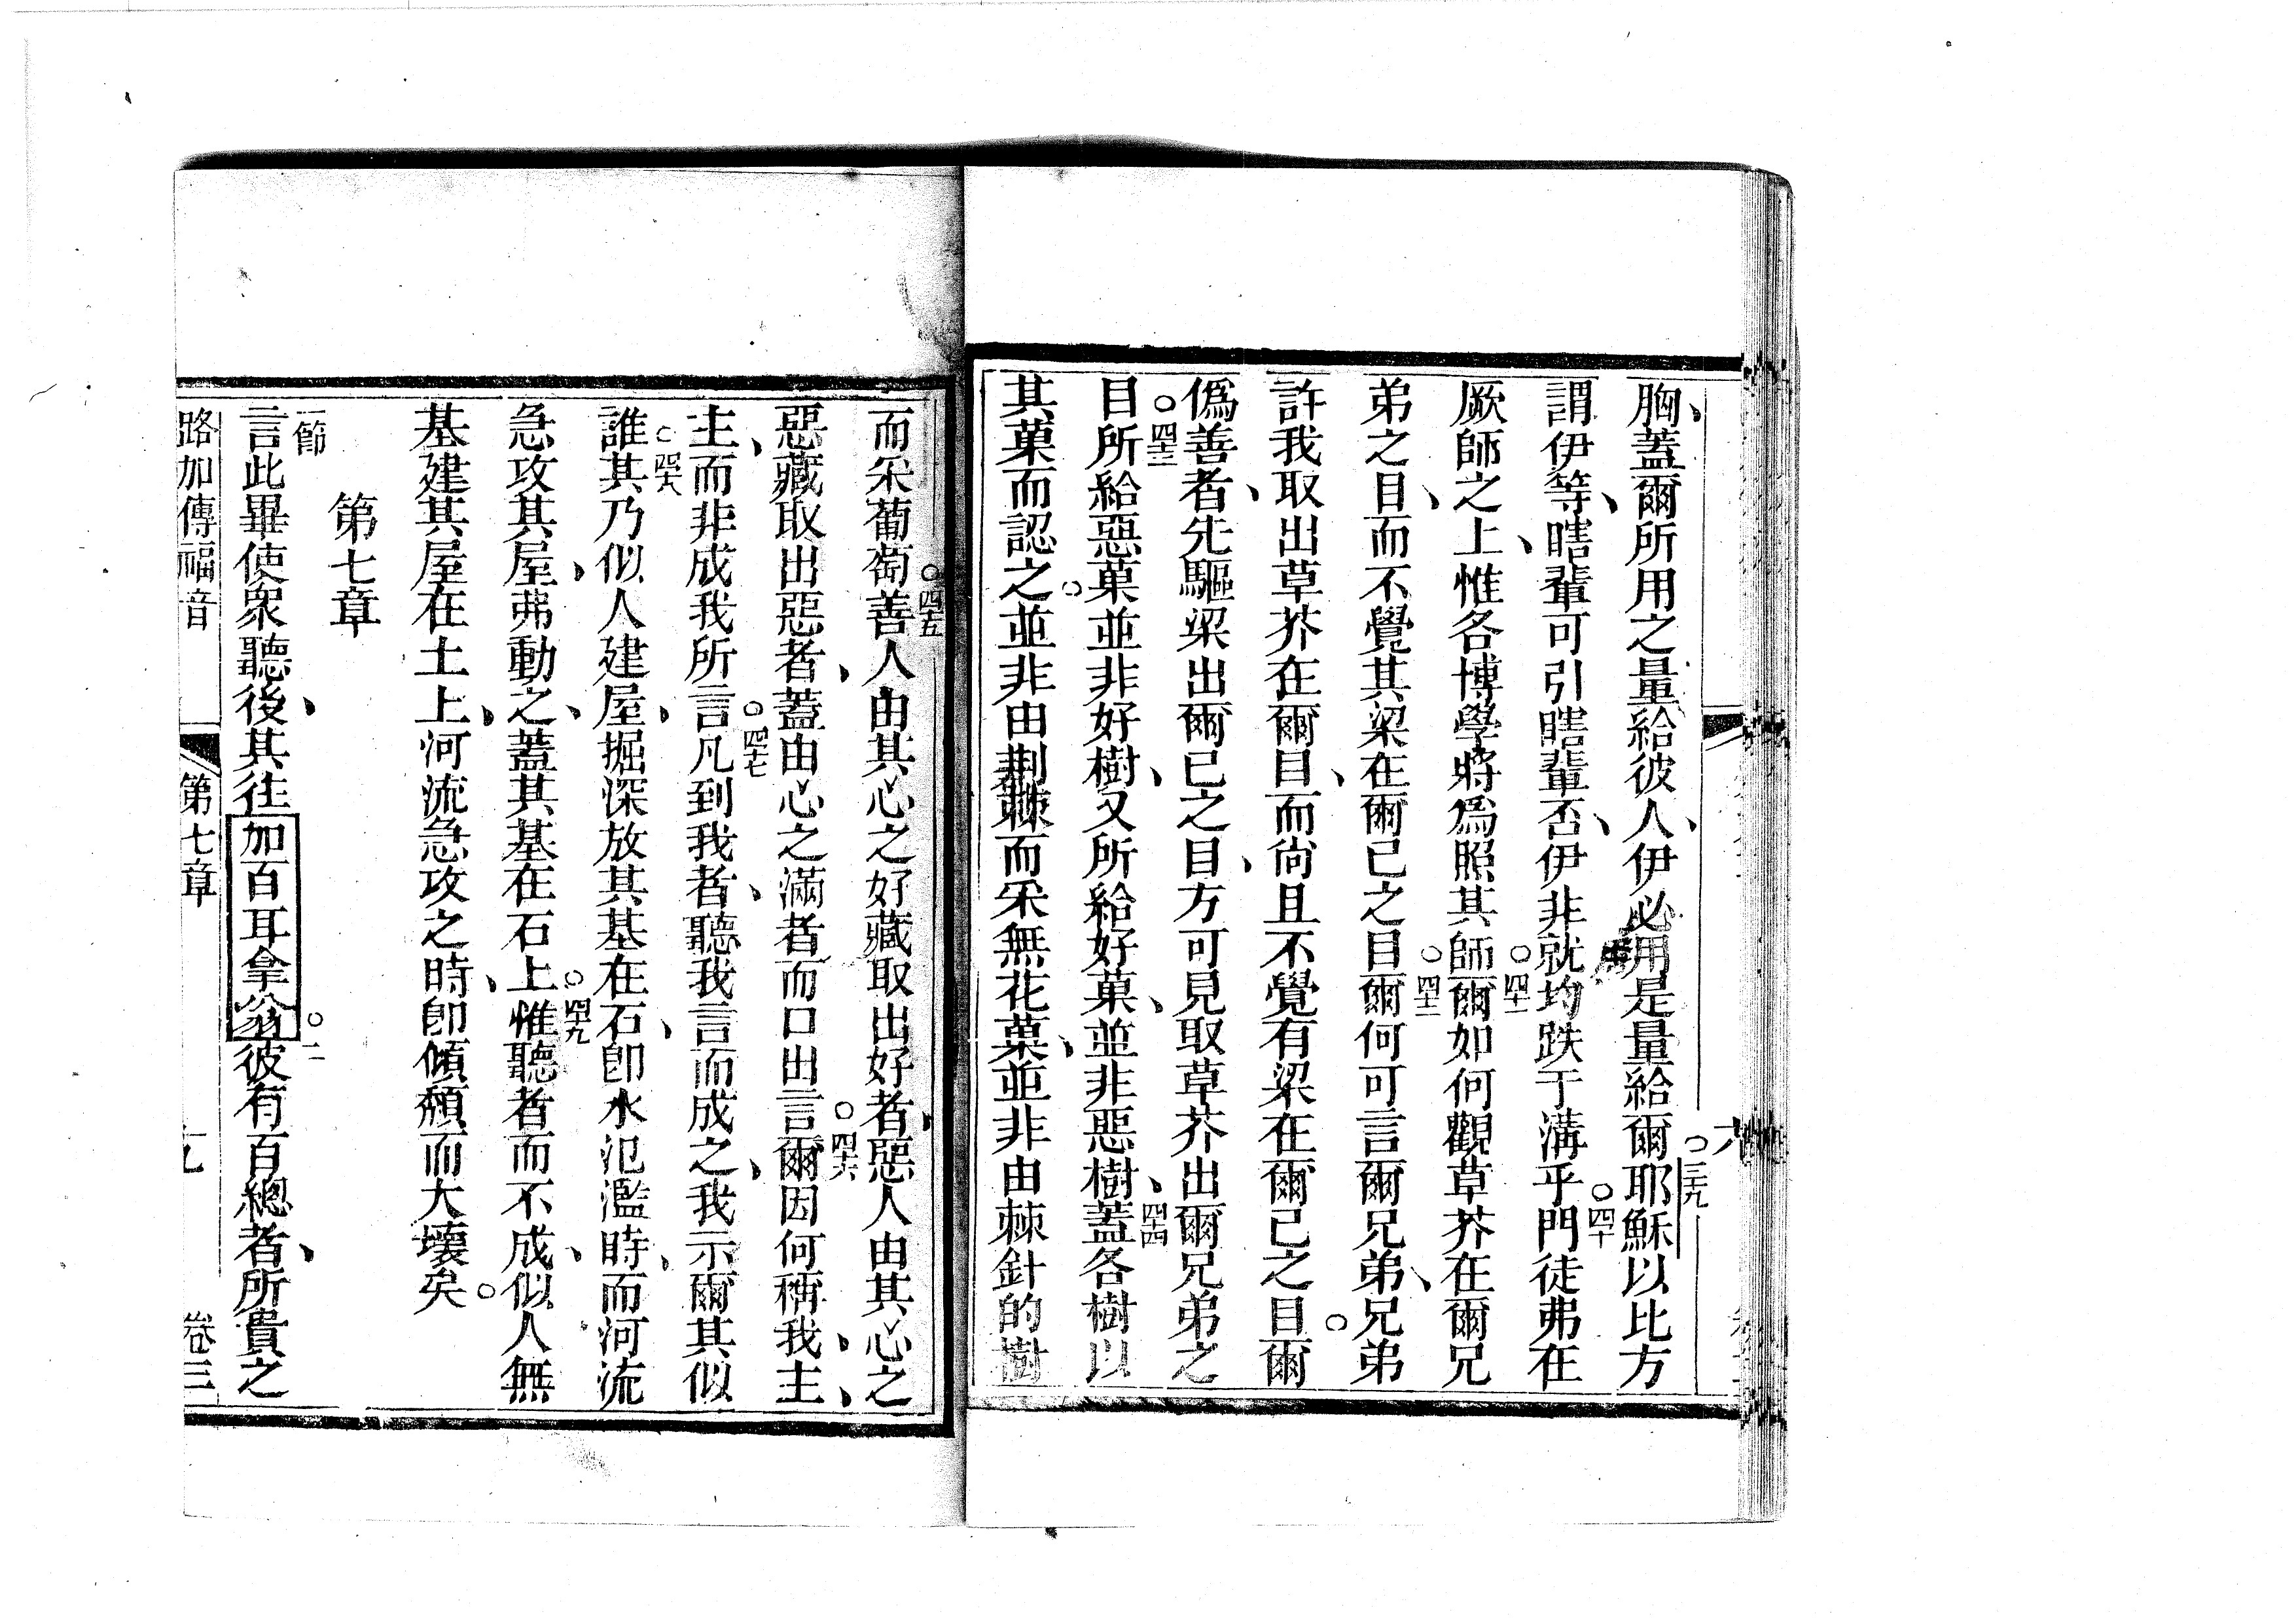 胸、蓋爾所用之量給彼人、伊必用是量給爾○三九耶穌以比方
謂伊等、瞎輩可引瞎輩否、伊非就均跌于溝乎○四十門徒弗在
厥師之上、惟各博學將爲照其師○四一爾如何觀草芥在爾兄
弟之目、而不覺其梁在爾己之目○四二爾何可言爾兄弟、兄弟
許我取出草芥在爾目、而尙且不覺有梁在爾己之目○爾
僞善者、先驅梁出爾己之目、方可見取草芥出爾兄弟之
目○四三所給惡菓並非好樹、又所給好菓、並非惡樹、四四蓋各樹以
其菓而認之○並非由荆棘而采無花菓、並非由棘針的樹
而采葡萄○四五善人由其心之好藏取出好者、惡人由其心之
惡藏取出惡者、蓋由心之滿者而口出言○四六爾因何稱我主、
主、而非成我所言○四七凡到我者、聽我言而成之、我示爾其似
誰○四八其乃似人建屋、掘深放其基在石、卽水氾濫時、而河流
急攻其屋、弗動之、蓋其基在石上○四九惟聽者而不成、似人無
基建其屋在土上、河流急攻之時、卽傾頹而大壞矣○
第七章
一節言此畢使衆聽、後其往加百耳拿翁○二彼有百總者、所貴之
路加傳福音 第七章 卷三